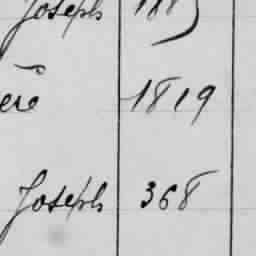 Joseph
ere 1819
Joseph 368